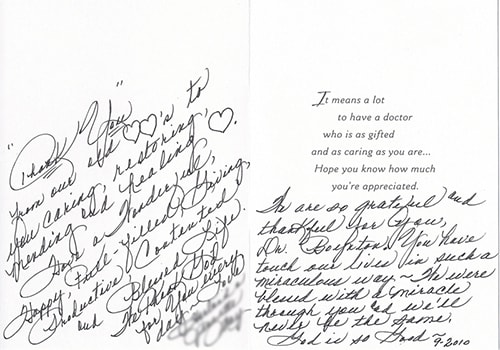 "Thank You"
from our old ♡♡'s to
you caring, restoring,
mending and healing ♡.
Have a Wonderful,
Happy, Full-filled, Giving,
Productive, Contented
and Blessed Life.
We thank God
for you every
day.
It means a lot
to have a doctor
who is as gifted
and as caring as you are...
Hope you know how much
you're appreciated.
We are so grateful and
thankful for You,
Dr. You have
touch our lives in such a
miraculous way ~ We were
blessed with a miracle
through you and we'll
never be the same.
God is so Good ~ 9-2010